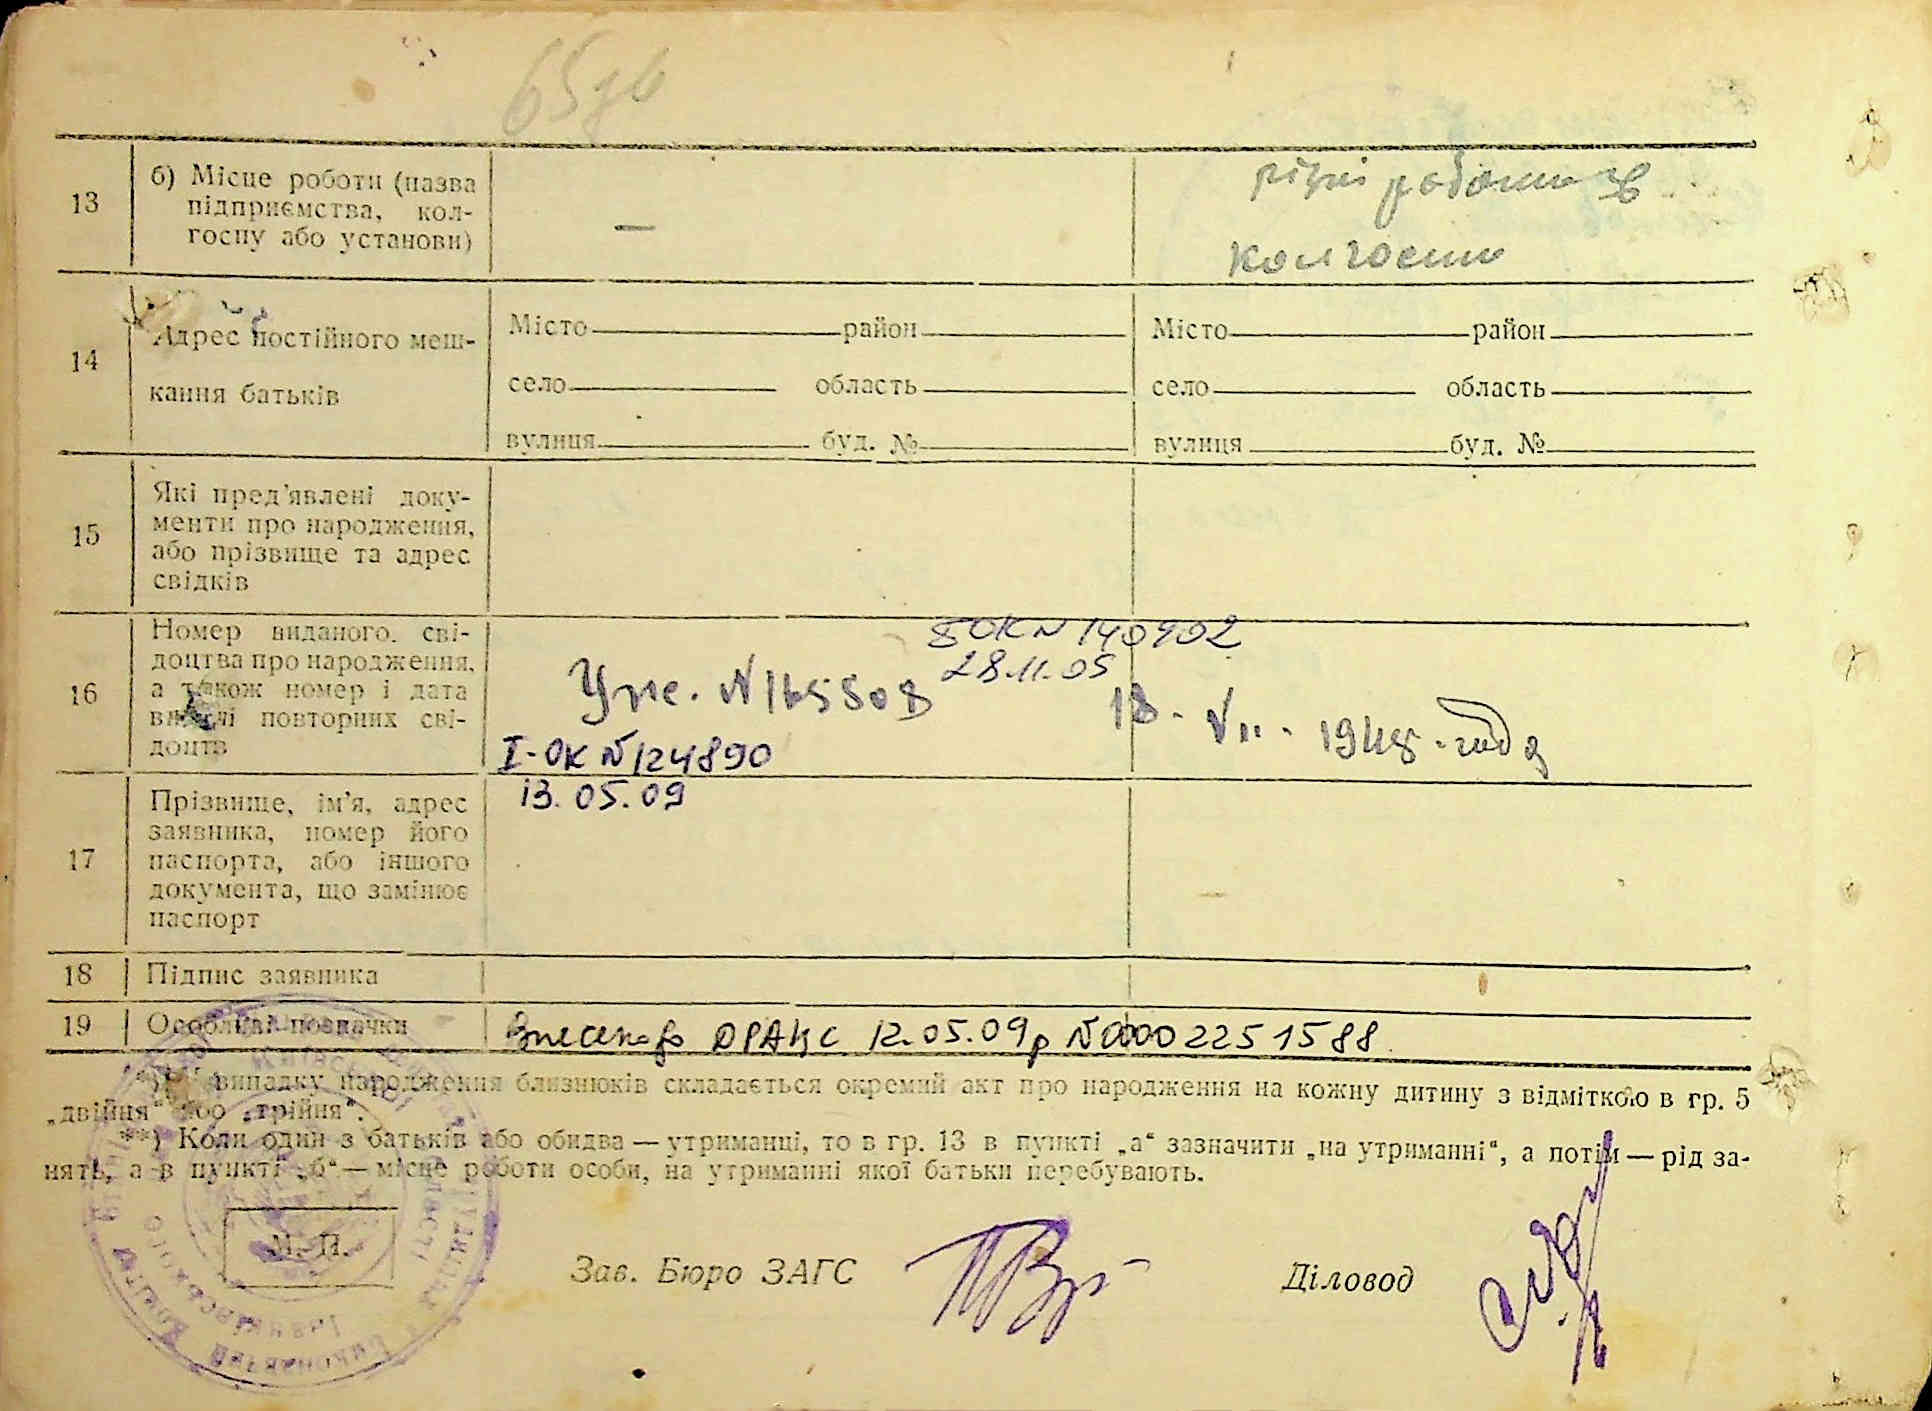 65зв
13
б) Місце роботи (назва
підприємства, кол-
госпу або установи)
—
різні роботи в
колгоспі
14
Адрес постійного меш-
кання батьків
Місто район
село область
вулиця буд. №
Місто район
село область
вулиця буд. №
15
Які пред'явлені доку-
менти про народження,
або прізвище та адрес
свідків
16
Номер виданого сві-
доцтва про народження,
а також номер і дата
видачі повторних сві-
доцтв
ОК N 140902
28.11.05
18. VII. 1948 года
I-ОК N 124890
13.05.09
17
Прізвище, ім'я, адрес
заявника, номер його
паспорта, або іншого
документа, що замінює
паспорт
18
Підпис заявника
19
Особливі позначки
Внесено до ДРАЦС 12.05.09р N 00002251588
*) У випадку народження близнюків складається окремий акт про народження на кожну дитину з відміткою в гр. 5
„двійня“ або „трійня“.
**) Коли один з батьків або обидва — утриманці, то в гр. 13 в пункті „а“ зазначити „на утриманні“, а потім — рід за-
нять, а в пункті „б“ — місце роботи особи, на утриманні якої батьки перебувають.
М. П.
Зав. Бюро ЗАГС
Діловод